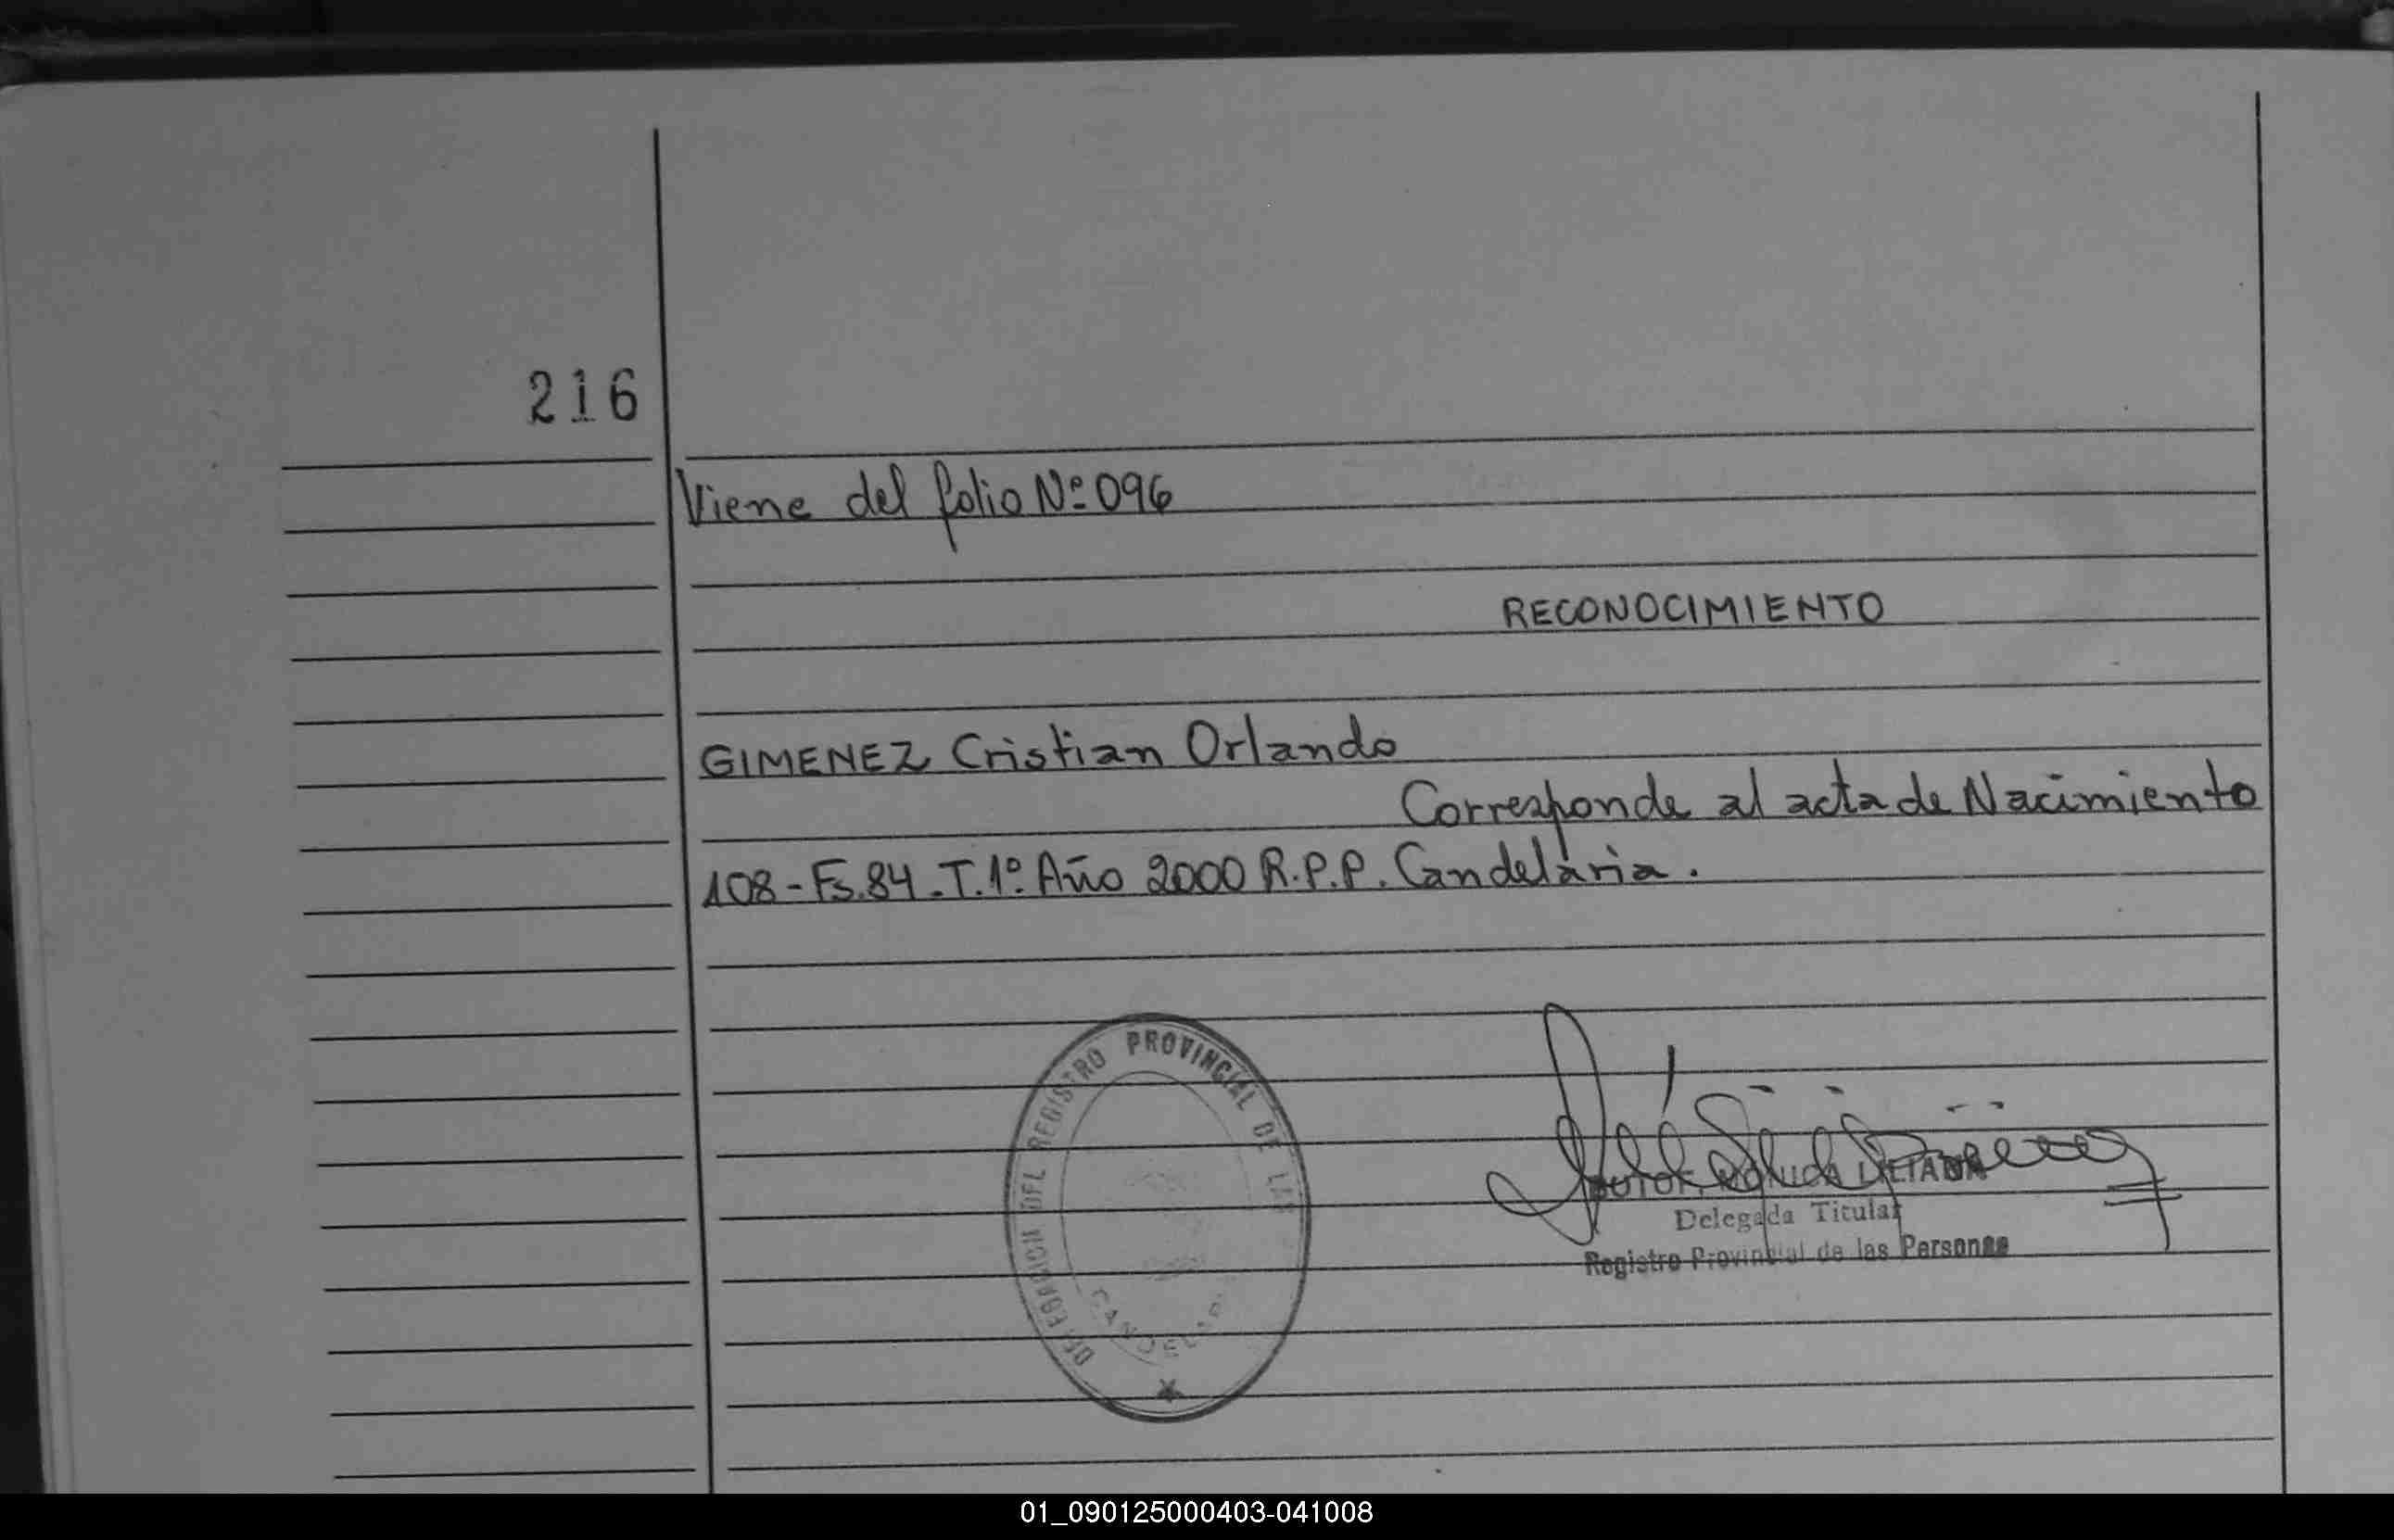 216
Viene del folio Nº 096
RECONOCIMIENTO
GIMENEZ Cristian Orlando
Corresponde al acta de Nacimiento
108-Fs.84.T.1º. Año 2000 R.P.P. Candelaria.
DELEGACION DEL REGISTRO PROVINCIAL DE LAS
Delegada Titular
Registro Provincial de las Personas
01_090125000403-041008